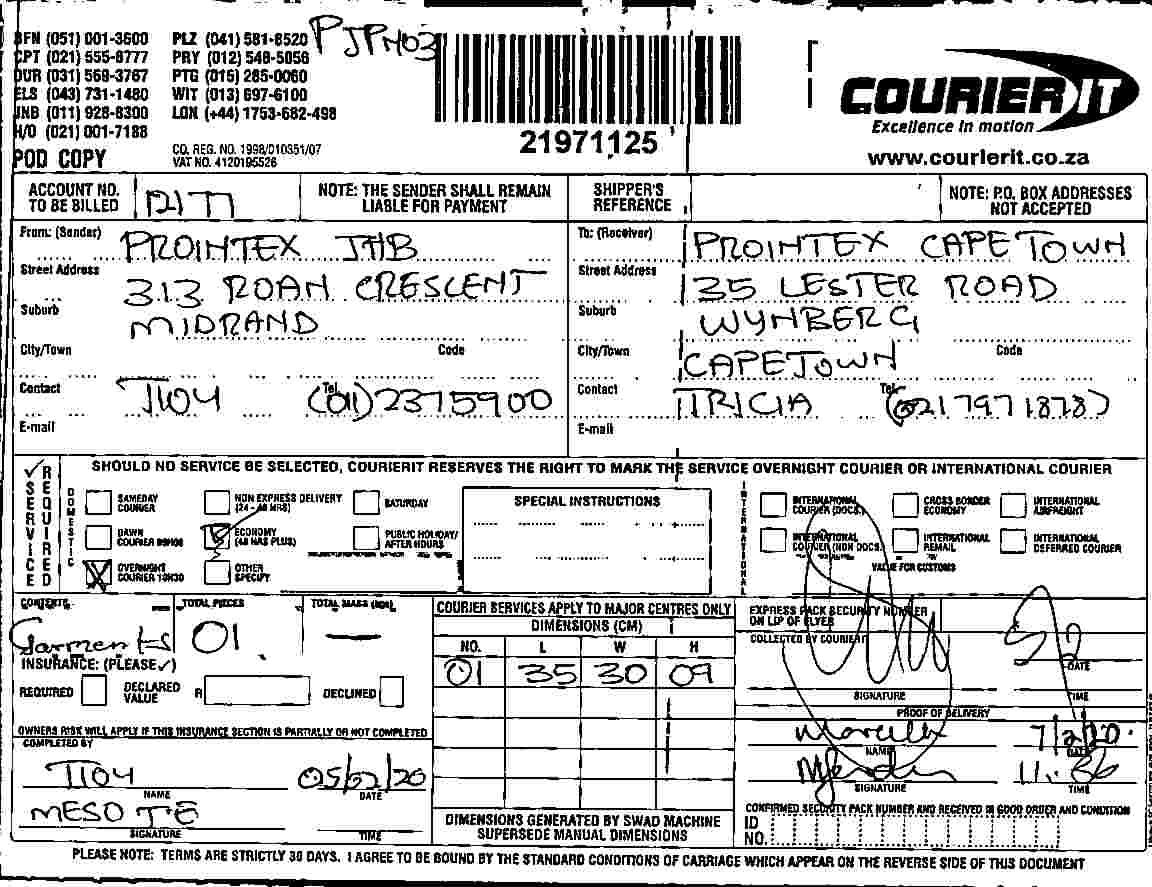 BFN (051) 001-3600 PLZ (041) 581-8520 PJPH03
CPT (021) 555-6777 PRY (012) 548-5056
DUR (031) 568-3767 PTG (015) 285-0060
ELS (043) 731-1480 WIT (013) 697-6100
JNB (011) 928-8300 LON (+44) 1753-682-498
H/O (021) 001-7188
POD COPY
CO. REG. NO. 1998/010351/07
VAT NO. 4120195526
21971125
COURIER IT
Excellence in motion
www.courierit.co.za
ACCOUNT NO. TO BE BILLED
NOTE: THE SENDER SHALL REMAIN LIABLE FOR PAYMENT
SHIPPER'S REFERENCE
NOTE: P.O. BOX ADDRESSES NOT ACCEPTED
From: (Sender) PROINTEX JHB
Street Address 313 ROAN CRESCENT
Suburb MIDRAND
City/Town Code
Contact Tel (011) 2375900
E-mail
To: (Receiver) PROINTEX CAPETOWN
Street Address 35 LESTER ROAD
Suburb WYNBERG
City/Town CAPETOWN Code
Contact TRICIA Tel (0217971878)
E-mail
SERVICE REQUIRED
SHOULD NO SERVICE BE SELECTED, COURIERIT RESERVES THE RIGHT TO MARK THE SERVICE OVERNIGHT COURIER OR INTERNATIONAL COURIER
DOMESTIC
SAMEDAY COURIER
NON EXPRESS DELIVERY (24 - 48 HRS)
SATURDAY
DAWN COURIER
ECONOMY (48 HRS PLUS)
PUBLIC HOLIDAY/ AFTER HOURS
OVERNIGHT COURIER 10H30
OTHER SPECIFY
SPECIAL INSTRUCTIONS
INTERNATIONAL
INTERNATIONAL COURIER (DOCS.)
CROSS BORDER ECONOMY
INTERNATIONAL AIRFREIGHT
INTERNATIONAL COURIER (NON DOCS.)
INTERNATIONAL REMAIL
INTERNATIONAL DEFERRED COURIER
VALUE FOR CUSTOMS
CONTENTS Garments
TOTAL PIECES 01
TOTAL MASS (KG)
INSURANCE: (PLEASE ✓)
REQUIRED DECLARED VALUE R DECLINED
OWNERS RISK WILL APPLY IF THIS INSURANCE SECTION IS PARTIALLY OR NOT COMPLETED
COMPLETED BY
05/02/20
NAME DATE
SIGNATURE TIME
COURIER SERVICES APPLY TO MAJOR CENTRES ONLY
DIMENSIONS (CM)
NO. L W H
01 35 30 09
DIMENSIONS GENERATED BY SWAD MACHINE SUPERSEDE MANUAL DIMENSIONS
EXPRESS PACK SECURITY NUMBER ON LIP OF FLYER
COLLECTED BY COURIERIT
5/2
DATE
SIGNATURE TIME
PROOF OF DELIVERY
7/2/20
NAME DATE
SIGNATURE TIME
CONFIRMED SECURITY PACK NUMBER AND RECEIVED IN GOOD ORDER AND CONDITION
ID NO.
PLEASE NOTE: TERMS ARE STRICTLY 30 DAYS. I AGREE TO BE BOUND BY THE STANDARD CONDITIONS OF CARRIAGE WHICH APPEAR ON THE REVERSE SIDE OF THIS DOCUMENT